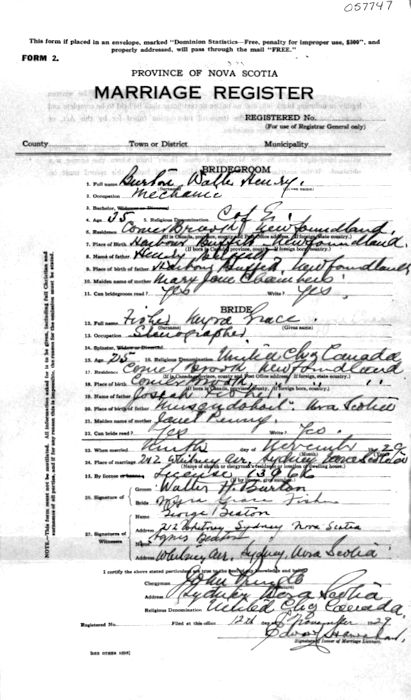 057747
This form if placed in an envelope, marked "Dominion Statistics—Free, penalty for improper use, $300", and
properly addressed, will pass through the mail "FREE."
FORM 2.
PROVINCE OF NOVA SCOTIA
MARRIAGE REGISTER
REGISTERED No.
(For use of Registrar General only)
County Town or District Municipality
BRIDEGROOM
1. Full name Burton Walter Henry.
(Surname) (Given name)
2. Occupation Mechanic
3. Bachelor,
4. Age 25 5. Religious Denomination C of E.
6. Residence Corner Brook, Newfoundland.
7. Place of Birth Harbour Buffett Newfoundland.
8. Name of father Henry
9. Place of birth of father Harbour Buffett, Newfoundland
10. Maiden name of mother Mary Jane Chambers
11. Can bridegroom read? Yes Write? Yes.
BRIDE
12. Full name Fisher Myra Grace
(Surname) (Given name)
13. Occupation Stenographer
14. Spinster,
15. Age 25 16. Religious Denomination United Chg Canada
17. Residence Corner Brook Newfoundland
18. Place of Birth Corner Brook, " "
19. Name of father Josiah Fisher
20. Place of birth of father Nova Scotia
21. Maiden name of mother Janet Penny.
22. Can bride read? Yes Write? Yes.
23. When married 29
24. Place of marriage 212 Whitney Ave. Sydney Nova Scotia
25. By license License 13966
26. Signature of
Groom Walter H. Burton
Bride Myra Grace Fisher
27. Signatures of Witnesses
Name George Beaton
Address 212 Whitney, Sydney Nova Scotia
Agnes Beaton
Address Whitney Ave, Sydney, Nova Scotia
I certify the above stated particulars are true to the best of my knowledge and belief
Clergyman John
Address Sydney Nova Scotia
Religious Denomination United Chg Canada.
Registered No. Filed at this office 12th day of November 1929
Signature of Issuer of Marriage Licenses
NOTE.—This form must not be mutilated. All information asked is to be given, including full Christian and
surnames of all parties, and if for any reason this is impossible, the reason for the omission must be stated.
[SEE OTHER SIDE]